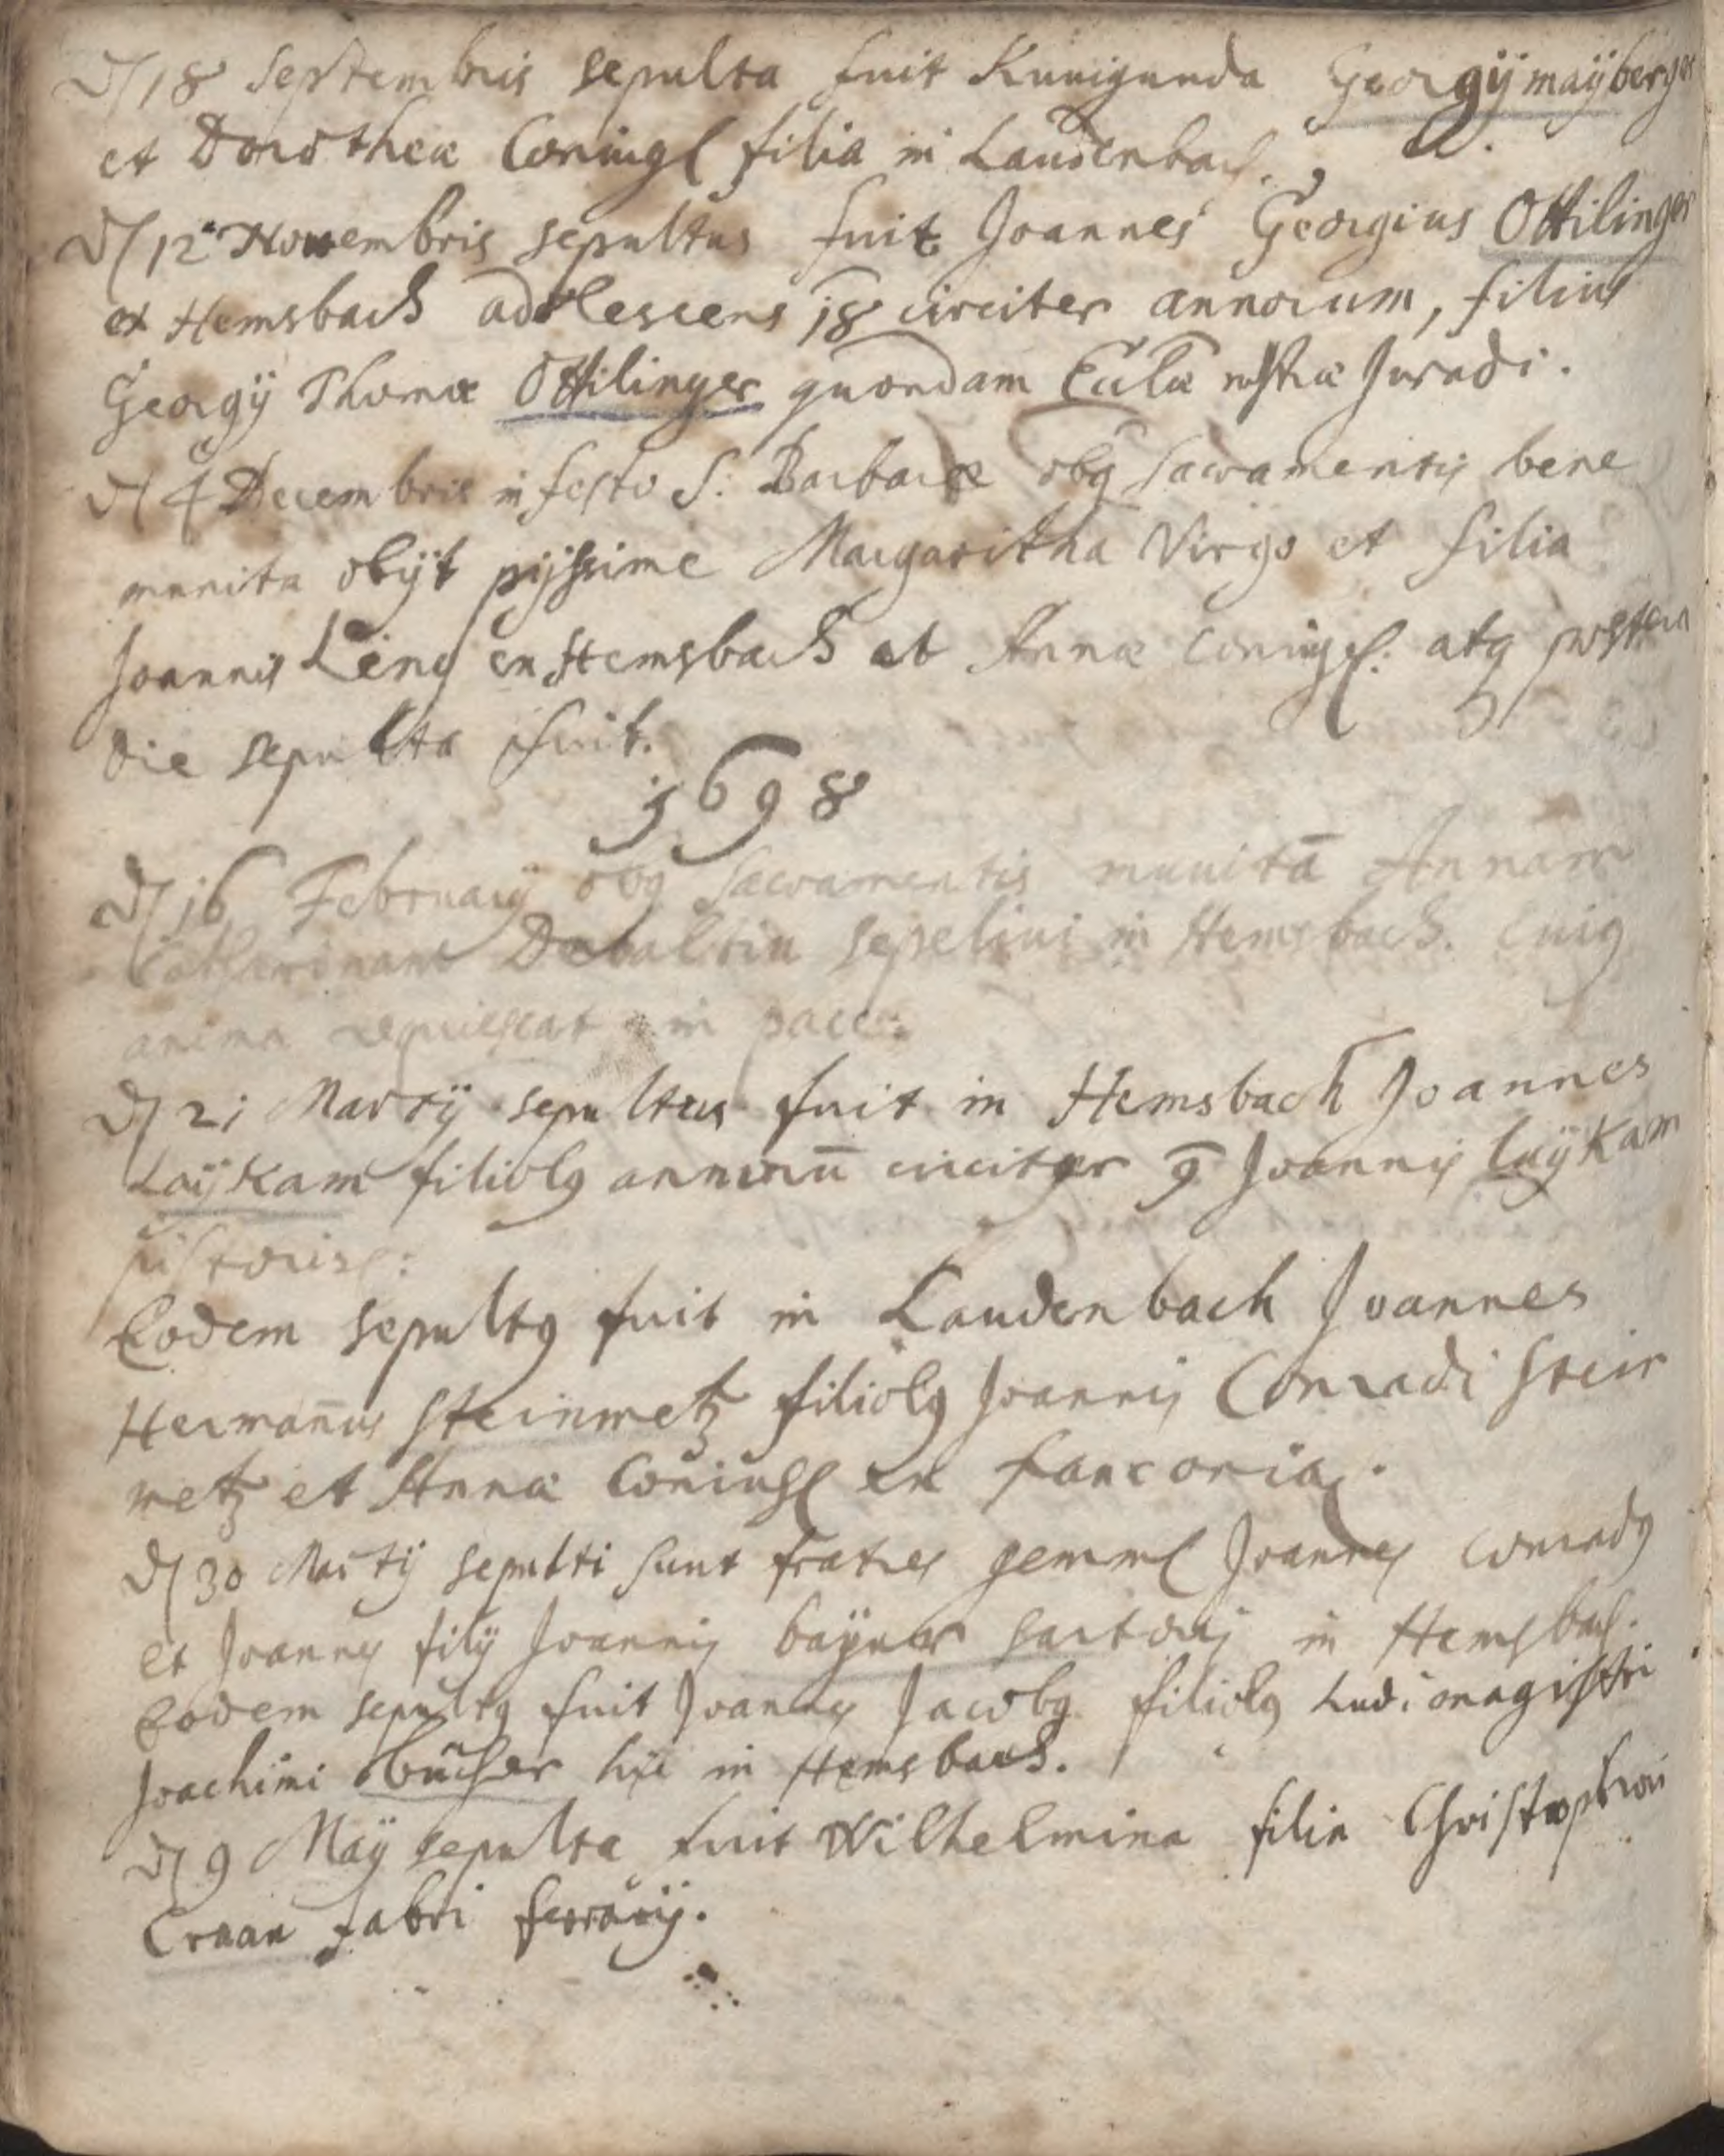 D/ 18 Septembris sepulta fuit Kunigunda Georgÿ maÿberger
et Dorotheæ Coniugl filia in Laudenbach.
D/ 12 Novembris sepultus fuit Joannes Georgius Ottilinger
ex Hemsbach adolescens 18 circiter annorum, filius
Georgÿ Thomæ Ottilinger quondam Eccl̄æ nostræ Juradi.
D/ 4 Decembris in festo S: Barbaræ obg sacramentis bene
munita obÿt pÿssime Margaritha Virgo et filia
Joannis Leng en Hemsbach et Annæ coniugl: atq postera
die sepulta fuit.
1698
D/ 16 Februarÿ obg Sacramentis munitā Annam
Catharinam sepelivi in Hemsbach. Cuig
anima requiescat in pace.
D/ 21 Martÿ sepultus fuit in Hemsbach Joannes
Laÿkam filiolg annorū circiter 9 Joannis laÿkam
pistoris:
Eodem sepultg fuit in Laudenbach Joannes
Herman̄us Steinmetz filiolg Joannis Conradi Stein
metz et Annæ Coniugl ex
D/ 30 Martÿ sepulti sunt fratres gemml Joannes Conradg
et Joannes filÿ Joannis baÿner sartoris in Hemsbach.
Eodem sepultg fuit Joannes Jacobg filiolg Ludimagistri
Joachimi bucher hic in Hemsbach.
D/ 9 Maÿ sepulta fuit Wilhelmina filia Christophori
Craan fabri ferrarÿ.